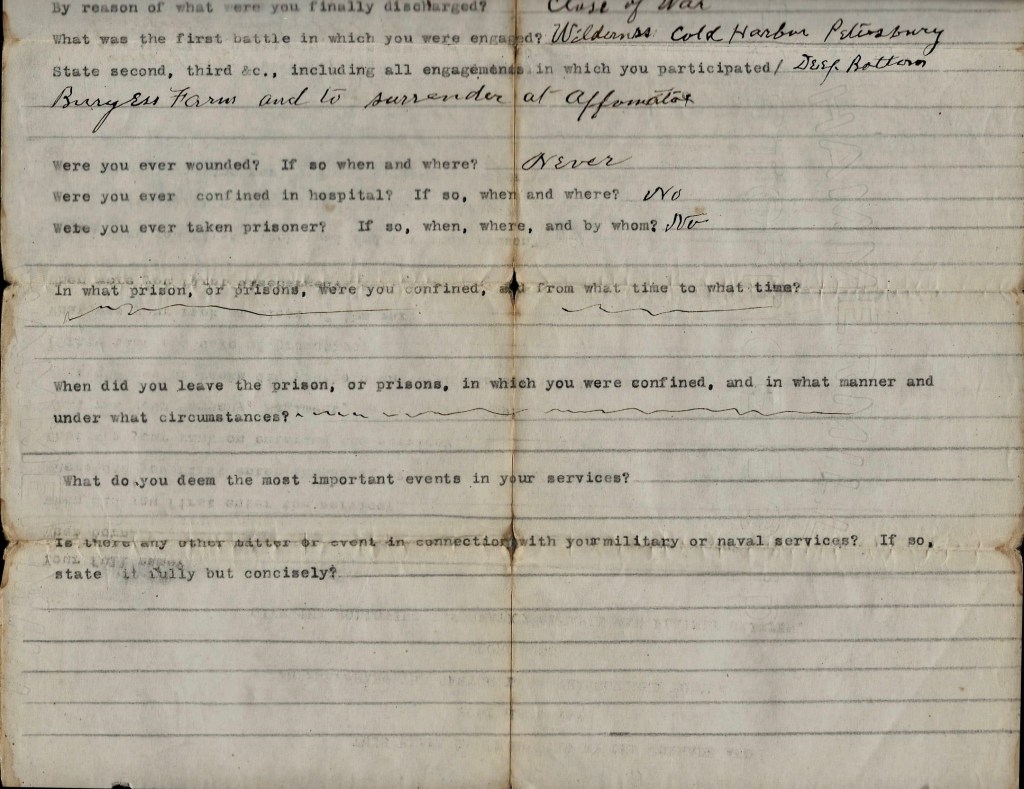 By reason of what were you finally discharged? Close of War
What was the first battle in which you were engaged? Wilderness Cold Harbor Petersburg
State second, third &c., including all engagements in which you participated/ Deep Bottom
Burgess Farm and to surrender at Appomatox
Were you ever wounded? If so when and where? Never
Were you ever confined in hospital? If so, when and where? No
Were you ever taken prisoner? If so, when, where, and by whom? No
In what prison, or prisons, were you confined, and from what time to what time?
When did you leave the prison, or prisons, in which you were confined, and in what manner and
under what circumstances?
What do you deem the most important events in your services?
Is there any other matter or event in connection with your military or naval services? If so,
state it fully but concisely?